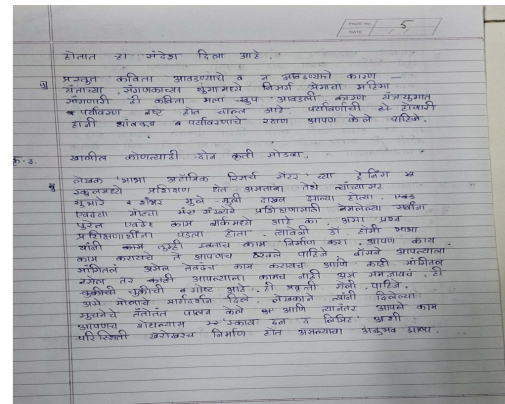 PAGE NO. 5
DATE
होतात हा संदेश दिला आहे.
प्रस्तुत कविता आवडण्याचे व न आवडण्याचे कारण –
यंत्राच्या, संगणकाच्या युगामध्ये निसर्ग प्रेमाचा महिमा
सांगणारी ही कविता मला खूप आवडली. कारण यंत्रयुगात
पर्यावरण नष्ट होत चालत आहे पर्यावरणाची ही होणारी
हानी थांबवून व पर्यावरणाचे रक्षण आपण केले पाहिजे.
खालील कोणत्याही दोन कृती सोडवा.
लेखक 'भाभा अटॉमिक रिसर्च सेंटर' च्या ट्रेनिंग
स्कूलमध्ये प्रशिक्षण घेत असताना तेथे त्यांच्यासह
सुमारे शंभर मुले-मुली दाखल झाल्या होत्या.
एवढ्या मोठ्या संख्येने प्रशिक्षणासाठी नेमलेल्या सर्वांना
पुरेल एवढे काम आहे का, असा प्रश्न
प्रशिक्षणार्थींना पडला होता. त्यावेळी डॉ. होमी भाभा
यांनी तुम्ही स्वतःच काम निर्माण करा. आपण काय
काम करायचे ते आपणच ठरवले पाहिजे. बॉसने आपल्याला
सांगितले असेल तेवढंच काम करायचं आणि काही सांगितलं
नसेल तर आपल्याला कामच नाही असं समजायचं, ही
चुकीची गोष्ट आहे. ही प्रवृत्ती गेली पाहिजे.
असे मोलाचे मार्गदर्शन दिले. लेखकाने त्यांनी दिलेल्या
सूचनेचे तंतोतंत पालन केले आणि त्यानंतर आपले काम
आपणच शोधल्यास 'स्काय इज द लिमिट' अशी
परिस्थिती खरोखरच निर्माण होत असल्याचा अनुभव